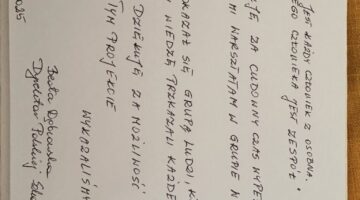 JEST KAŻDY CZŁOWIEK Z OSOBNA,
EGO CZŁOWIEKA JEST ZESPÓŁ".
JĘ ZA CUDOWNY CZAS WYPEŁ
MI WARSZTATAMI W GRUPIE N
KAZAŁ SIĘ GRUPĄ LUDZI, K
WIEDZĘ PRZKAZALI KAŻDE
DZIĘKUJĘ ZA MOŻLIWOŚĆ
TYM PROJEKCIE
WYKAZALIŚMY
Beata Dąbrowska
Dyrektor Polskiej
2025